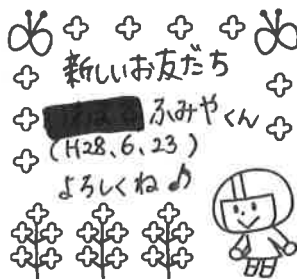 新しいお友だち
ふみやくん
(H28.6.23)
よろしくね♪